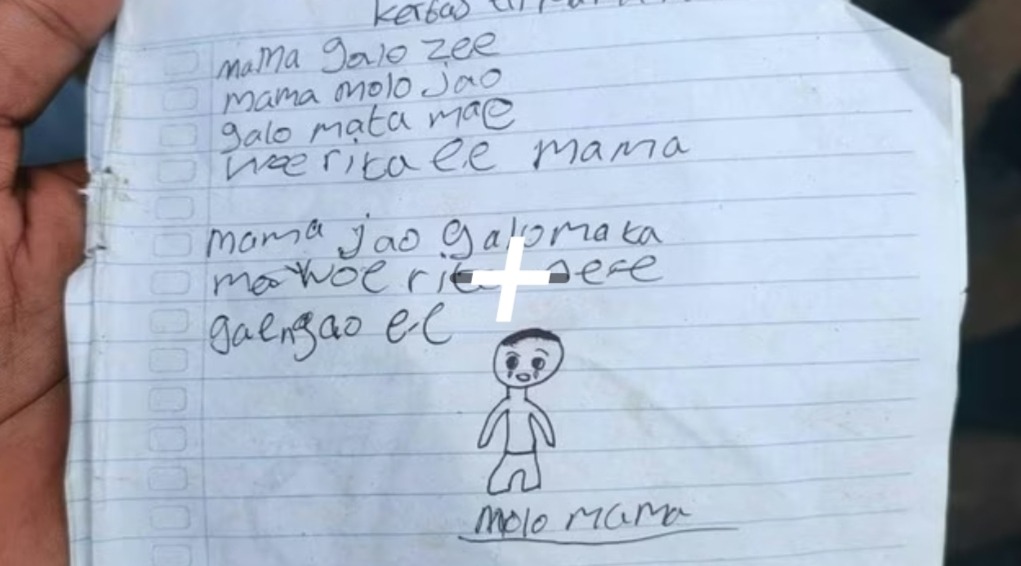 mama galo zee
mama molo jao
galo mata mae
woe rita ee mama
mama jao galo mata
mae woe rita ee
gaengao ee
molo mama